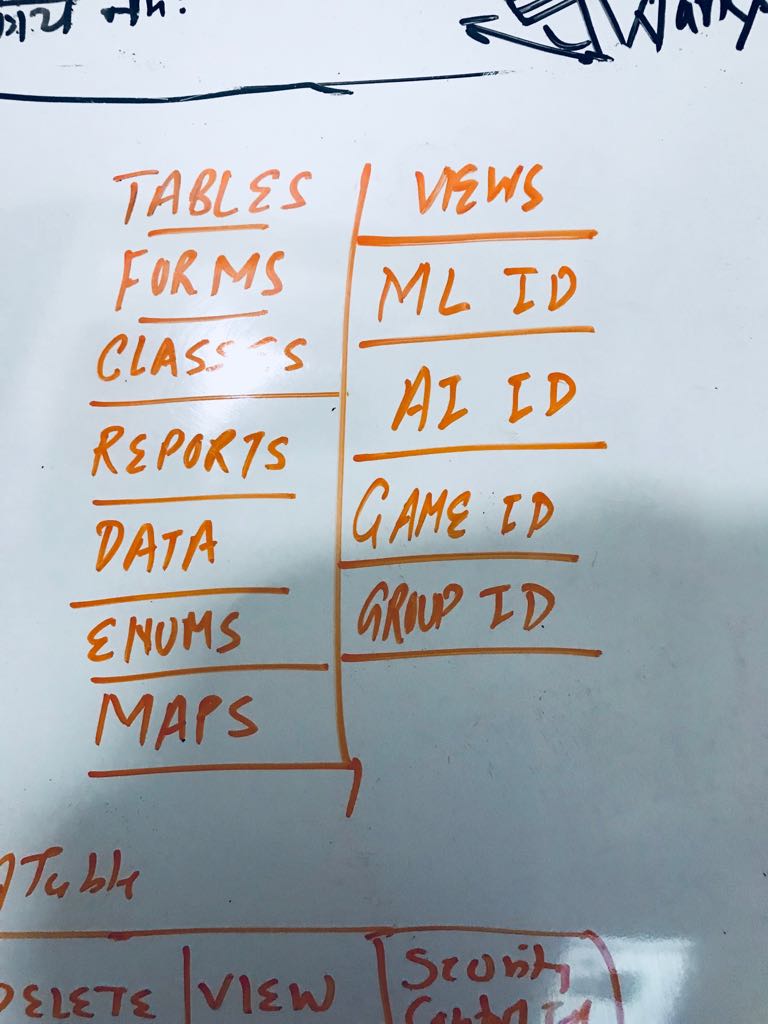 TABLES
FORMS
CLASSES
REPORTS
DATA
ENUMS
MAPS
VIEWS
ML ID
AI ID
GAME ID
GROUP ID
Table
DELETE | VIEW | Security